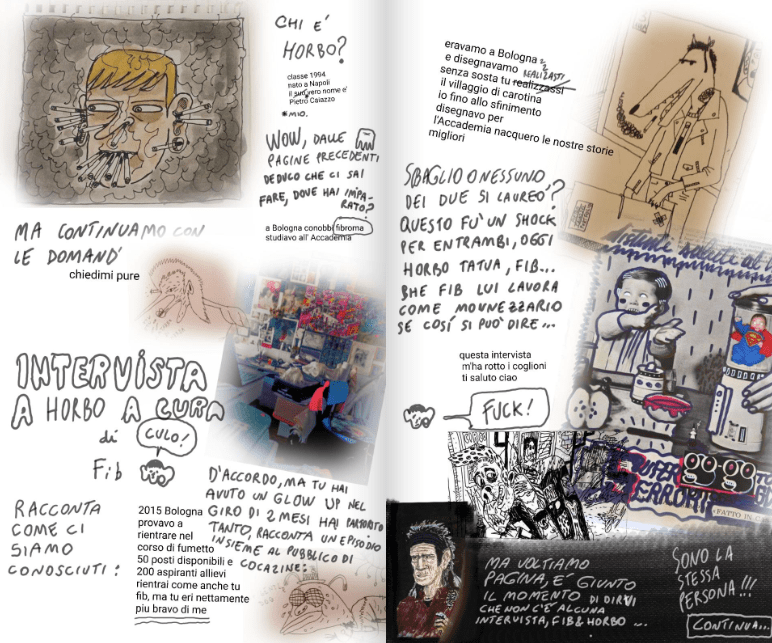 CHI E'
HORBO?
classe 1994
nato a Napoli
il suo vero nome e'
Pietro Caiazzo
*MIO.
WOW, DALLE
PAGINE PRECEDENTI
DEDUCO CHE CI SAI
FARE, DOVE HAI IMPA-
RATO?
a Bologna conobbi fibroma
studiavo all' Accademia
MA CONTINUAMO CON
LE DOMAND'
chiedimi pure
INTERVISTA
A HORBO A CURA
di
CULO!
Fib
RACCONTA
COME CI
SIAMO
CONOSCIUTI:
2015 Bologna
provavo a
rientrare nel
corso di fumetto
50 posti disponibili e
200 aspiranti allievi
rientrai come anche tu
fib, ma tu eri nettamente
piu bravo di me
D'ACCORDO, MA TU HAI
AVUTO UN GLOW UP NEL
GIRO DI 2 MESI HAI PARTORITO
TANTO, RACCONTA UN EPISODIO
INSIEME AL PUBBLICO DI
COCAZINE:
eravamo a Bologna
e disegnavamo
REALIZASTI
senza sosta tu realizzassi
il villaggio di carotina
io fino allo sfinimento
disegnavo per
l'Accademia nacquero le nostre storie
migliori
SBAGLIO O NESSUNO
DEI DUE SI LAUREÒ?
QUESTO FU' UN SHOCK
PER ENTRAMBI, OGGI
HORBO TATUA, FIB...
BHE FIB LUI LAVORA
COME MOVNEZZARIO
SE COSÍ SI PUÒ DIRE...
questa intervista
m'ha rotto i coglioni
ti saluto ciao
FUCK!
salute al
SUPER
ERRORI
FATTO IN C
MA VOLTIAMO
PAGINA, E' GIUNTO
IL MOMENTO DI DIRVI
CHE NON C'È ALCUNA
INTERVISTA, FIB & HORBO ...
SONO LA
STESSA
PERSONA!!!
CONTINUA...